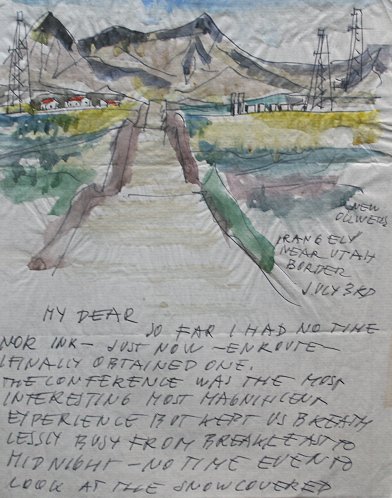 NEW
OILWELLS
RANGELY
NEAR UTAH
BORDER
JULY 3RD
MY DEAR
SO FAR I HAD NO TIME
NOR INK - JUST NOW - ENROUTE
I FINALLY OBTAINED ONE.
THE CONFERENCE WAS THE MOST
INTERESTING MOST MAGNIFICENT
EXPERIENCE BUT KEPT US BREATH
LESSLY BUSY FROM BREAKFAST TO
MIDNIGHT - NO TIME EVEN TO
LOOK AT THE SNOWCOVERED